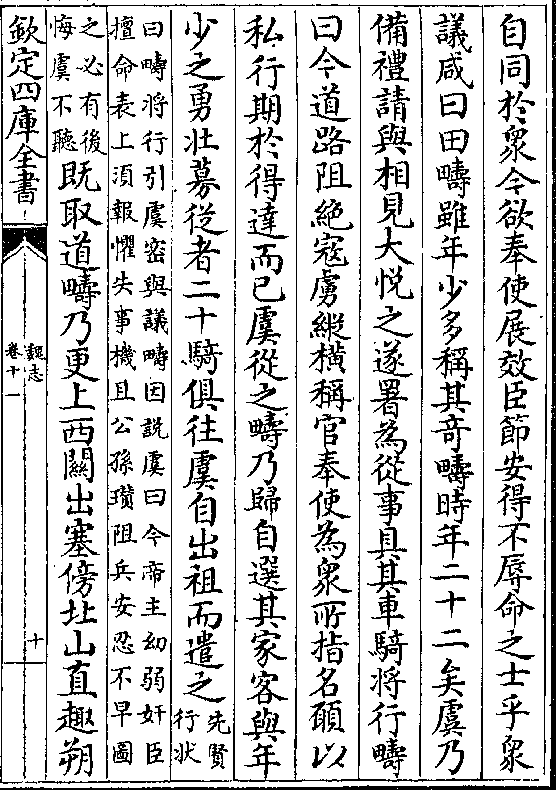 自同於衆今欲奉使展效臣節安得不辱命之士乎衆
議咸曰田疇雖年少多稱其奇疇時年二十二矣虞乃
備禮請與相見大悅之遂署為從事具其車騎將行疇
曰今道路阻絶寇虜縱橫稱官奉使為衆所指名願以
私行期於得達而已虞從之疇乃歸自選其家客與年
少之勇壯募從者二十騎俱往虞自出祖而遣之先賢
行狀
曰疇將行引虞密與議疇因説虞曰今帝主幼弱奸臣
擅命表上湏報懼失事機且公孫瓚阻兵安忍不早圖
之必有後
悔虞不聽既取道疇乃更上西關出塞傍北山直趣朔
欽定四庫全書
魏志
卷十一
十